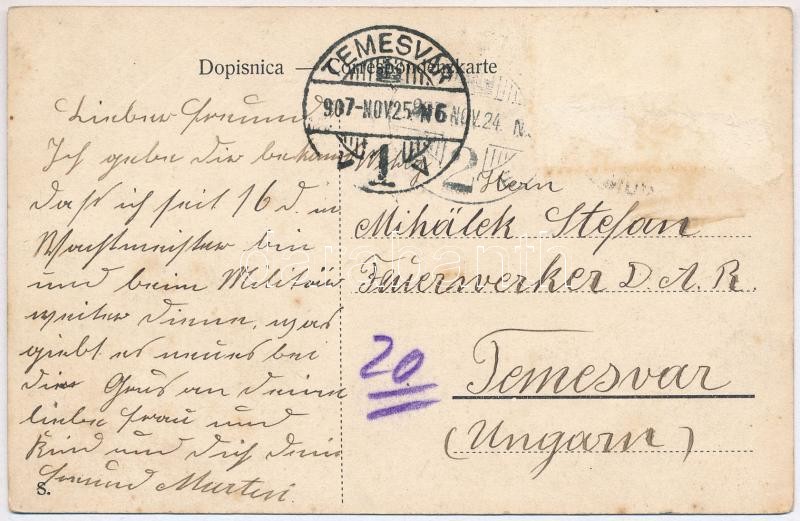 Dopisnica — Correspondenzkarte
TEMESVÁR
907-NOV.25. N6
1
NOV.24. N
2
Lieber Freund
Ich gebe dir bekannt
daß ich seit 16 d. m
Wachtmeister bin
und beim Militär
weiter diene, was
giebt es neues bei
dir Grus an deine
liebe frau und
Kind und dich dein
freund Martin
S.
Hern
Mihálek Stefan
Feuerwerker D. A. R.
20.
Temesvar
(Ungarn)